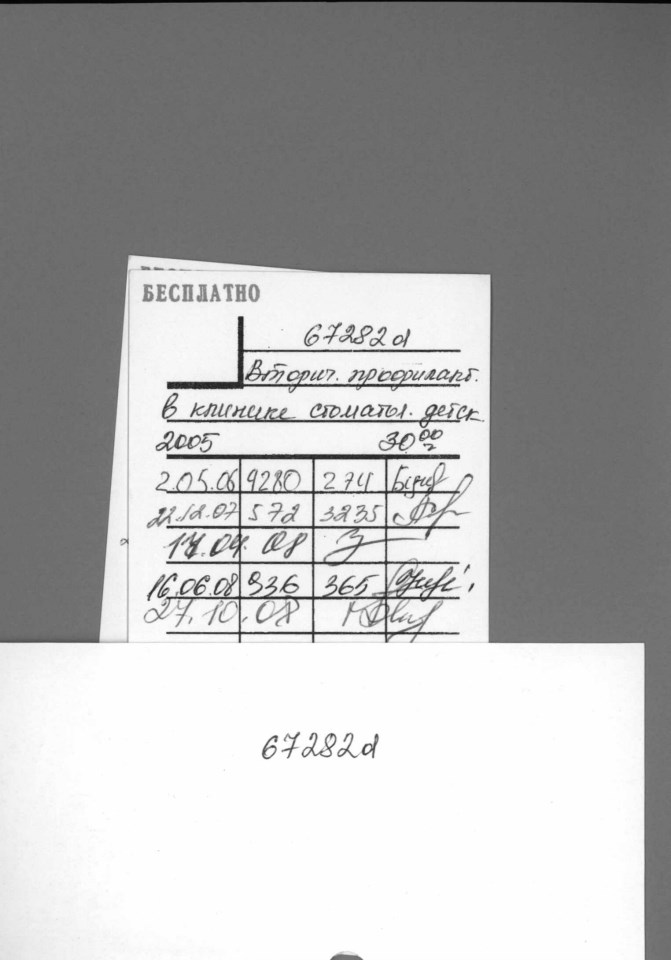 БЕСПЛАТНО
67282д
Вторич. профилакт.
в клинике стоматол. детск.
2005 30⁰⁰
2.05.06 9280 274
22.12.07 572 3235
17.04.08
16.06.08 936 365
27.10.08
67282д